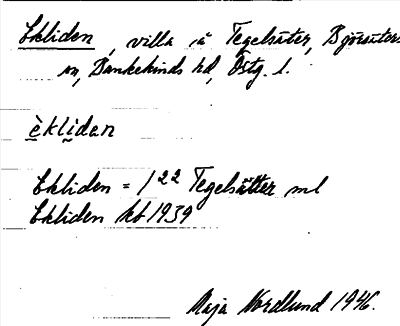 Ekliden, villa å Tegelsäter, Björsäters
sn, Bankekinds hd, Östg. l.
èkli̱dan
Ekliden = 1²² Tegelsätter ml
Ekliden kb 1939
Maja Nordlund 1946.